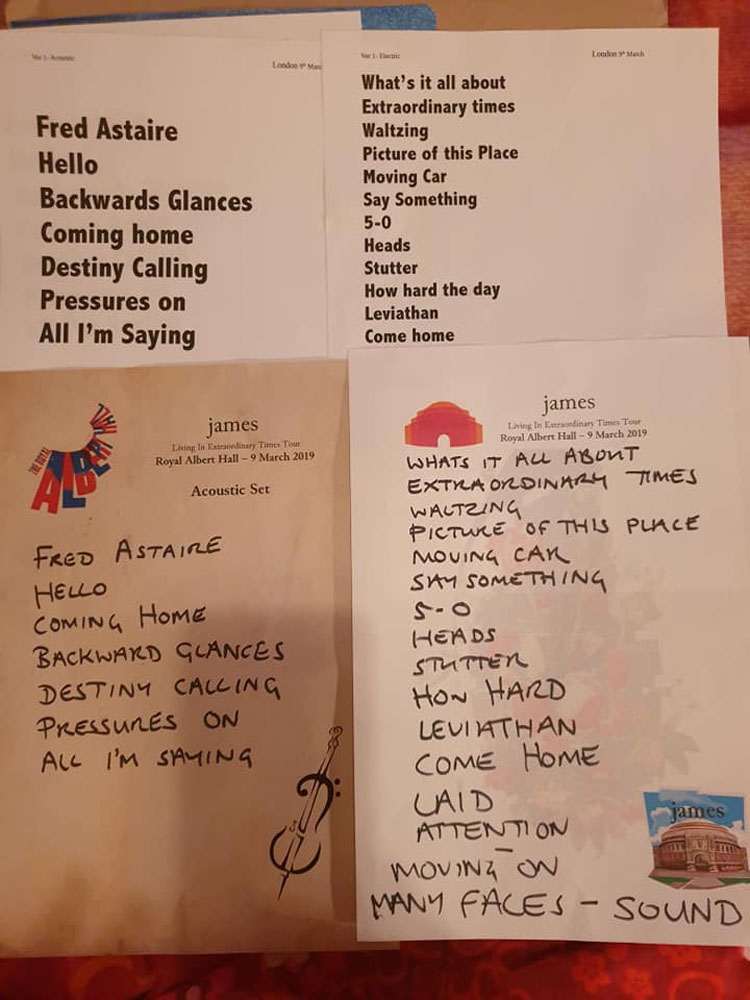 Ver 1- Acoustic
London 9th March
Fred Astaire
Hello
Backwards Glances
Coming home
Destiny Calling
Pressures on
All I'm Saying
Ver 1- Electric
London 9th March
What's it all about
Extraordinary times
Waltzing
Picture of this Place
Moving Car
Say Something
5-0
Heads
Stutter
How hard the day
Leviathan
Come home
THE ROYAL
ALBERT
HALL
james
Living In Extraordinary Times Tour
Royal Albert Hall – 9 March 2019
Acoustic Set
FRED ASTAIRE
HELLO
COMING HOME
BACKWARD GLANCES
DESTINY CALLING
PRESSURES ON
ALL I'M SAYING
james
Living In Extraordinary Times Tour
Royal Albert Hall – 9 March 2019
WHATS IT ALL ABOUT
EXTRAORDINARY TIMES
WALTZING
PICTURE OF THIS PLACE
MOVING CAR
SAY SOMETHING
5-0
HEADS
STUTTER
HOW HARD
LEVIATHAN
COME HOME
LAID
ATTENTION
–
MOVING ON
MANY FACES – SOUND
james